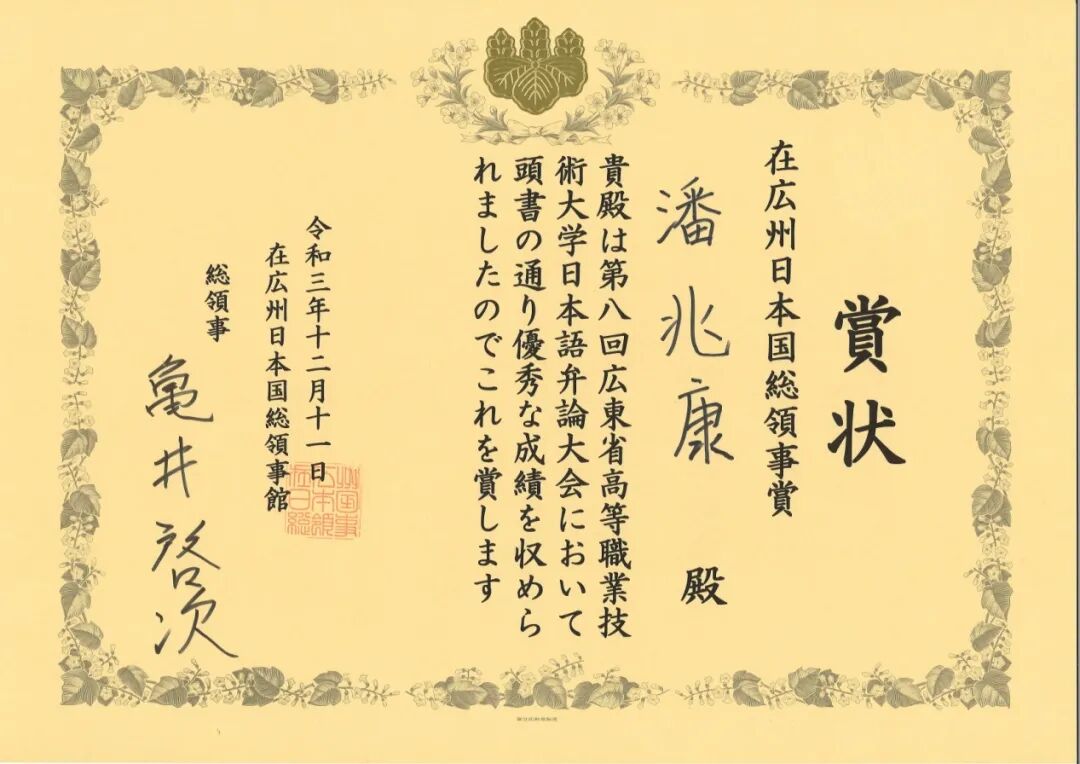 賞状
在広州日本国総領事賞
潘兆康 殿
貴殿は第八回広東省高等職業技
術大学日本語弁論大会において
頭書の通り優秀な成績を収めら
れましたのでこれを賞します
令和三年十二月十一日
在広州日本国総領事館
総領事
亀井啓次